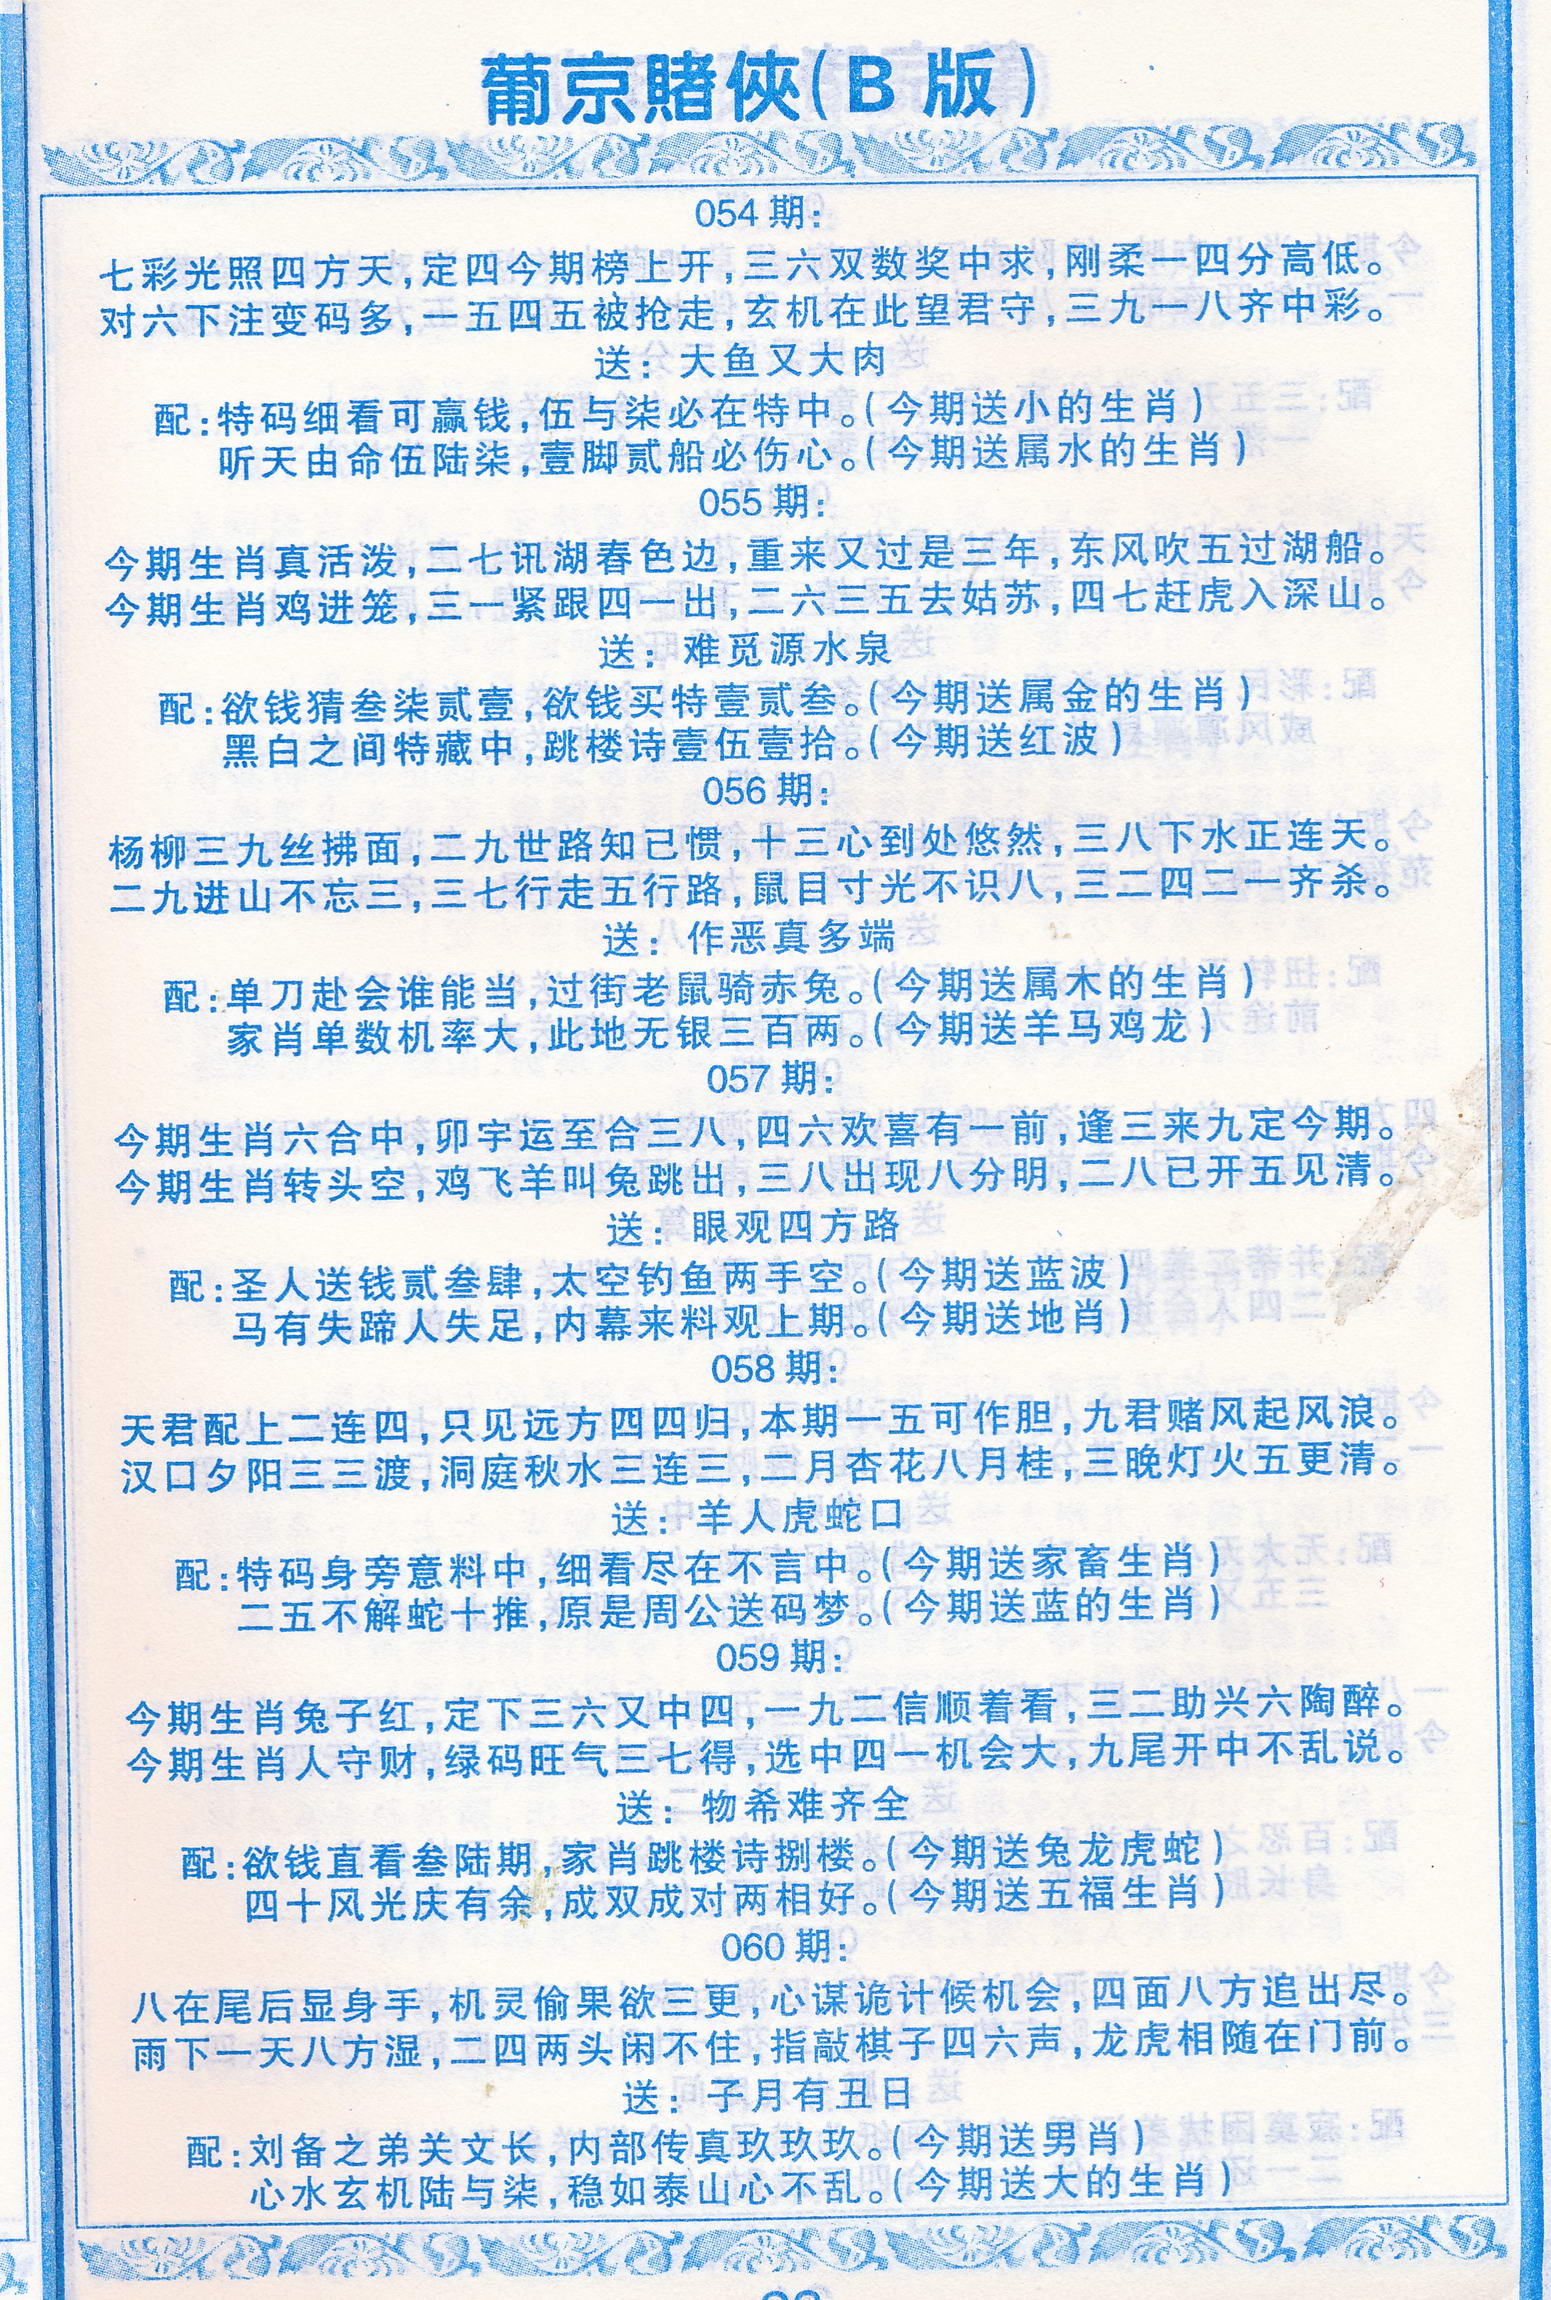 葡京賭俠(B 版)
054 期:
七彩光照四方天,定四今期榜上开,三六双数奖中求,刚柔一四分高低。
对六下注变码多,一五四五被抢走,玄机在此望君守,三九一八齐中彩。
送: 大鱼又大肉
配:特码细看可赢钱,伍与柒必在特中。(今期送小的生肖)
听天由命伍陆柒,壹脚贰船必伤心。(今期送属水的生肖)
055 期:
今期生肖真活泼,二七讯湖春色边,重来又过是三年,东风吹五过湖船。
今期生肖鸡进笼,三一紧跟四一出,二六三五去姑苏,四七赶虎入深山。
送: 难觅源水泉
配:欲钱猜叁柒贰壹,欲钱买特壹贰叁。(今期送属金的生肖)
黑白之间特藏中,跳楼诗壹伍壹拾。(今期送红波)
056 期:
杨柳三九丝拂面,二九世路知已惯,十三心到处悠然,三八下水正连天。
二九进山不忘三,三七行走五行路,鼠目寸光不识八,三二四二一齐杀。
送: 作恶真多端
配:单刀赴会谁能当,过街老鼠骑赤兔。(今期送属木的生肖)
家肖单数机率大,此地无银三百两。(今期送羊马鸡龙)
057 期:
今期生肖六合中,卯宇运至合三八,四六欢喜有一前,逢三来九定今期。
今期生肖转头空,鸡飞羊叫兔跳出,三八出现八分明,二八已开五见清。
送: 眼观四方路
配:圣人送钱贰叁肆,太空钓鱼两手空。(今期送蓝波)
马有失蹄人失足,内幕来料观上期。(今期送地肖)
058 期:
天君配上二连四,只见远方四四归,本期一五可作胆,九君赌风起风浪。
汉口夕阳三三渡,洞庭秋水三连三,二月杏花八月桂,三晚灯火五更清。
送: 羊人虎蛇口
配:特码身旁意料中,细看尽在不言中。(今期送家畜生肖)
二五不解蛇十推,原是周公送码梦。(今期送蓝的生肖)
059 期:
今期生肖兔子红,定下三六又中四,一九二信顺着看,三二助兴六陶醉。
今期生肖人守财,绿码旺气三七得,选中四一机会大,九尾开中不乱说。
送: 物希难齐全
配:欲钱直看叁陆期,家肖跳楼诗捌楼。(今期送兔龙虎蛇)
四十风光庆有余,成双成对两相好。(今期送五福生肖)
060 期:
八在尾后显身手,机灵偷果欲三更,心谋诡计候机会,四面八方追出尽。
雨下一天八方湿,二四两头闲不住,指敲棋子四六声,龙虎相随在门前。
送: 子月有丑日
配:刘备之弟关文长,内部传真玖玖玖。(今期送男肖)
心水玄机陆与柒,稳如泰山心不乱。(今期送大的生肖)